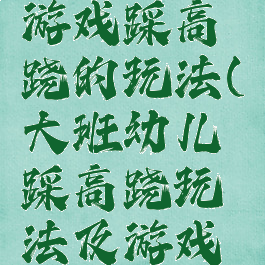 游戏踩高
跷的玩法(
大班幼儿
踩高跷玩
法及游戏